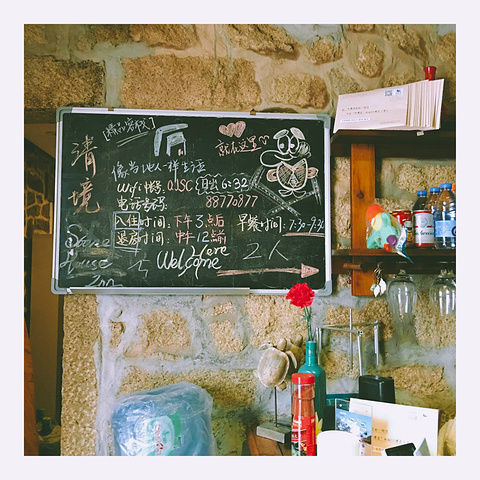 [精品客栈]
清境
就在这里
像当地人一样生活
Wifi帐号:
电话号码 88770877
入住时间:下午3点后
早餐时间:7:30-9:30
退房时间:中午12点前
Stone
House
Inn
Welcome Here
2人